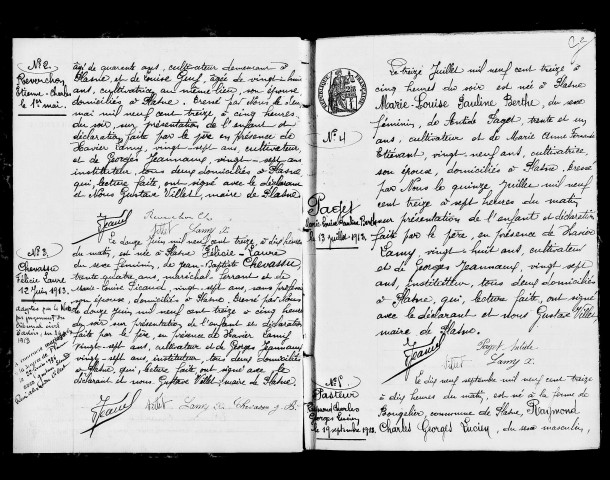 N° 2.
Reverchon
Etienne-Charles
le 1er mai.
âgé de quarante ans, cultivateur demeurant à
Plasne, et de Louise Guy, âgée de vingt-huit
ans, cultivatrice au même lieu, son épouse
domiciliés à Plasne. Dressé par Nous le deux
mai mil neuf cent treize à cinq heures
du soir, sur présentation de l'enfant et
déclaration faite par le père, en présence de
Xavier Lamy, vingt-sept ans, cultivateur,
et de Georges Jeannaux, vingt-sept ans
instituteur, tous deux domiciliés à Plasne,
qui, lecture faite, ont signé avec le déclarant
et Nous Gustave Villet, maire de Plasne.
Reverchon Ch
Villet Lamy X.
N° 3.
Chevassu
Félicie Laure
12 Juin 1913.
Le douze Juin mil neuf cent treize à dix heures
du matin, est née à Plasne Félicie-Laure
du sexe féminin, de Jean-Baptiste Chevassu
trente quatre ans, maréchal-ferrant et de
Marie-Louise vingt-sept ans, sans profession
son épouse, domiciliés à Plasne. Dressé par Nous
le douze Juin mil neuf cent treize à cinq heures
du soir sur présentation de l'enfant et déclaration
faite par le père, en présence de Xavier Lamy
vingt-sept ans, cultivateur et de Georges Jeannaux
vingt-sept ans, instituteur, tous deux domiciliés
à Plasne, qui, lecture faite, ont signé avec le
déclarant et nous Gustave Villet, maire de Plasne.
Villet Lamy X. Chevassu J. B.
2
N° 4
Paget
Marie Louise Pauline Berthe
le 13 juillet 1913.
Le treize Juillet mil neuf cent treize à
cinq heures du soir est née à Plasne
Marie-Louise Pauline Berthe, du sexe
féminin, de Aristide Paget, trente et un
ans, cultivateur et de Marie Anne
Etiévant, vingt neuf ans, cultivatrice
son épouse, domiciliés à Plasne, Dressé
par Nous le quinze Juillet mil neuf
cent treize à sept heures du matin
sur présentation de l'enfant et déclaration
faite par le père, en présence de Xavier
Lamy, vingt huit ans, cultivateur
et de Georges Jeannaux, vingt sept
ans, Instituteur, tous deux domiciliés
à Plasne, qui, lecture faite, ont signé
avec le déclarant et nous Gustave Villet
maire de Plasne.
Paget
Villet Lamy X.
N° 5.
Pasteur
Raymond Charles
Georges Lucien
le 19 septembre 1913.
Le dix neuf septembre mil neuf cent treize
à dix heures du matin, est né à la ferme de
Bougelier, commune de Plasne, Raymond
Charles Georges Lucien, du sexe masculin,